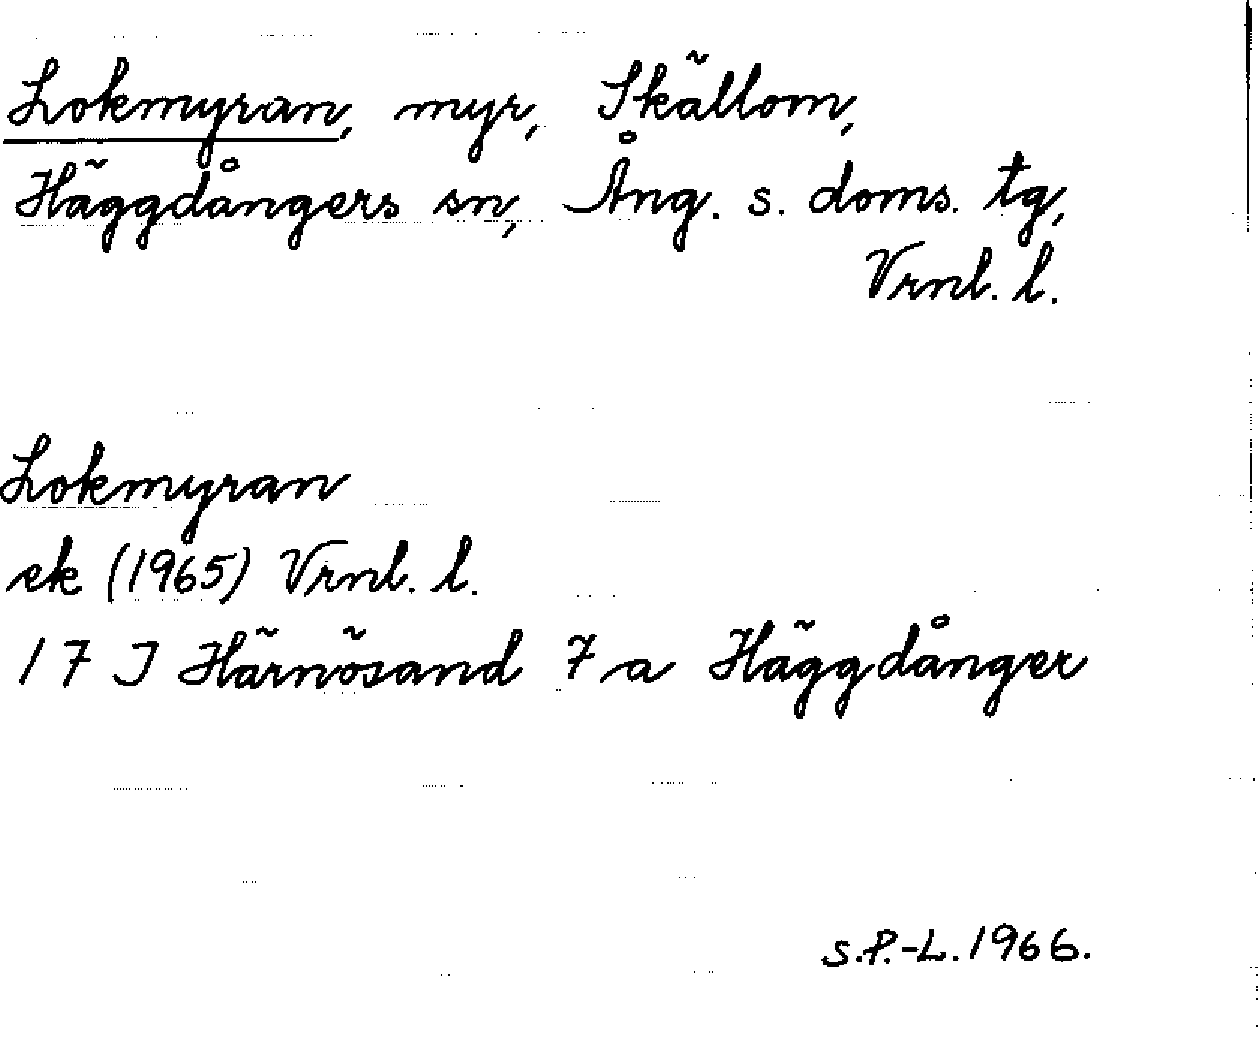 Lokmyran, myr, Skällom,
Häggdångers sn, Ång. s. doms. tg,
Vrnl. l.
Lokmyran
ek (1965) Vrnl. l.
17 J Härnösand 7 a Häggdånger
S.P.-L. 1966.